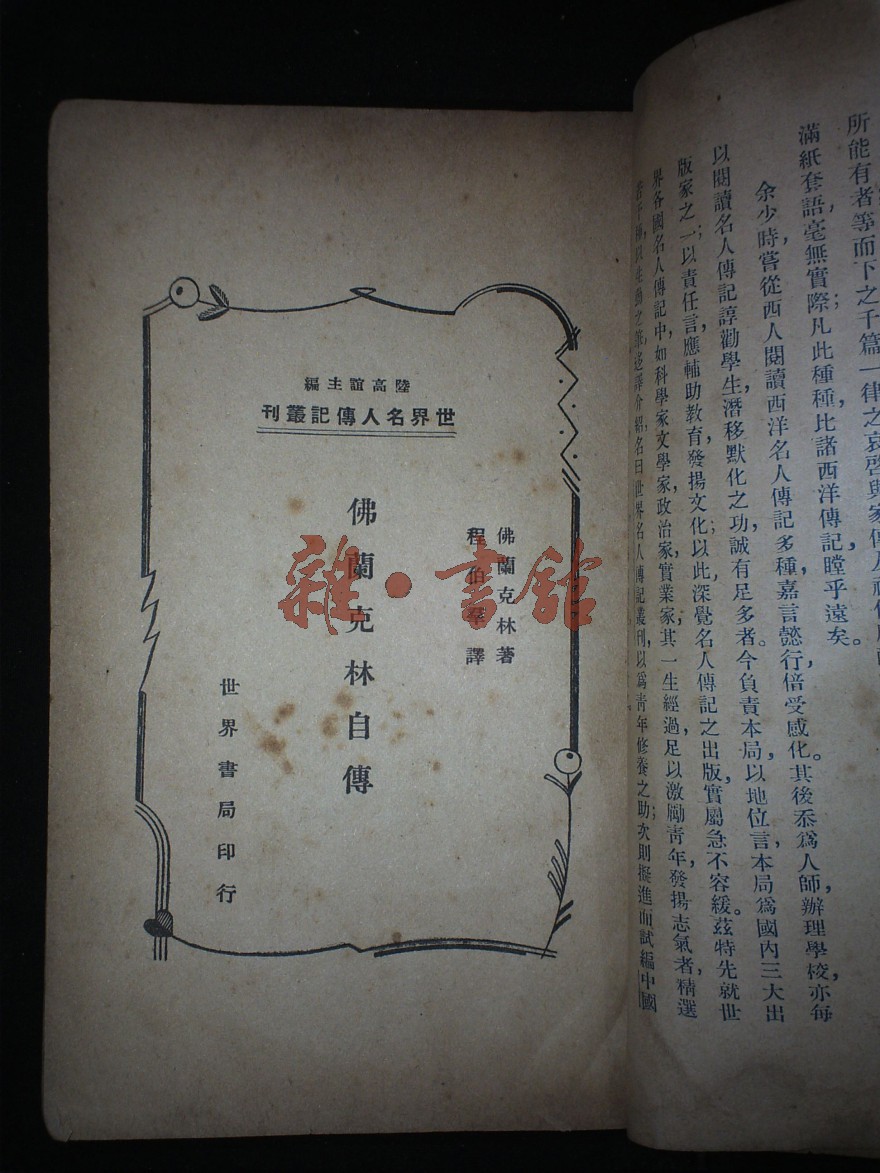 所能有者等而下之千篇一律之哀啓與家傳
滿紙套語，毫無實際；凡此種種，比諸西洋傳記，瞠乎遠矣。
余少時，嘗從西人閱讀西洋名人傳記多種，嘉言懿行，倍受感化。其後忝爲人師，辦理學校，亦每
以閱讀名人傳記諄勸學生；潛移默化之功，誠有足多者。今負責本局，以地位言，本局爲國內三大出
版家之一；以責任言，應輔助教育，發揚文化；以此深覺名人傳記之出版，實屬急不容緩。茲特先就世
界各國名人傳記中，如科學家，文學家，政治家，實業家，其一生經過足以激勵青年，發揚志氣者，精選
之筆，迻譯介紹，名曰世界名人傳記叢刊，以爲青年修養之助；次則擬進而試編中國
陸高誼主編
世界名人傳記叢刊
佛蘭克林著
程伯羣譯
佛蘭克林自傳
世界書局印行
雜·書館